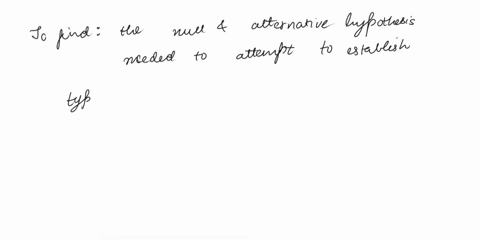 To find: the null & alternative hypothesis
needed to attempt to establish
typ